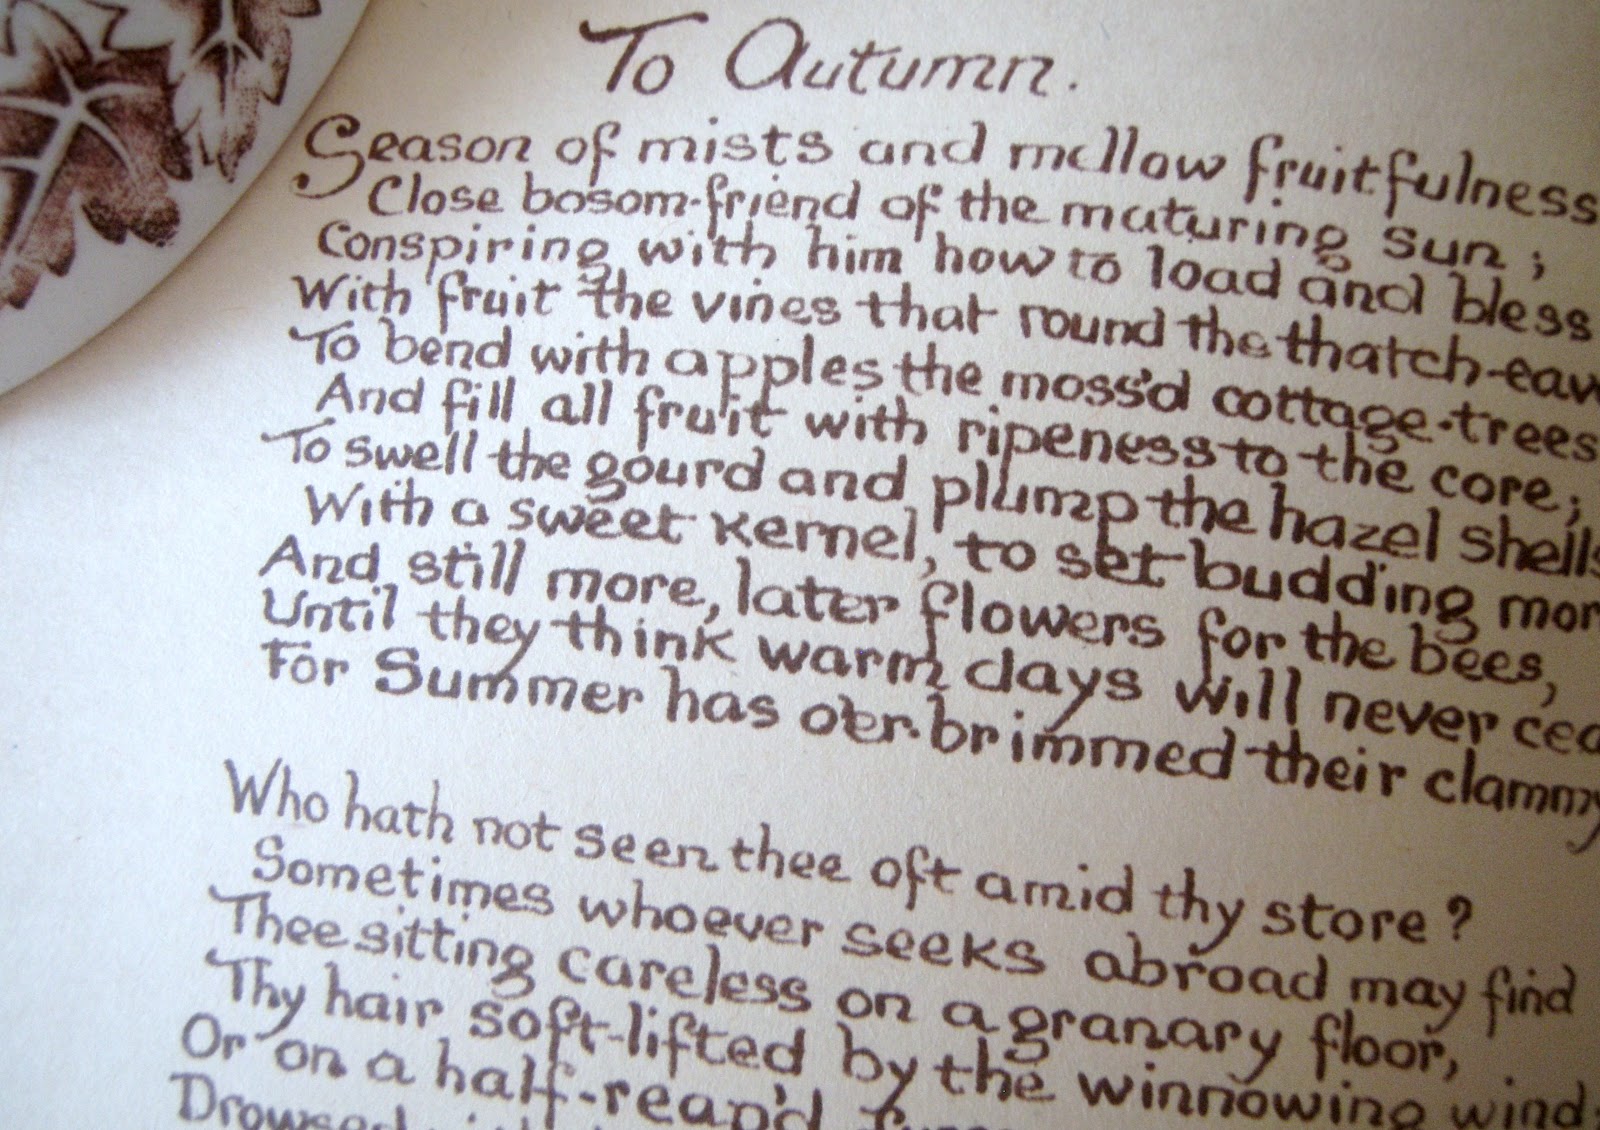 To Autumn.
Season of mists and mellow fruitfulness
Close bosom-friend of the maturing sun;
Conspiring with him how to load and bless
With fruit the vines that round the thatch-eav
To bend with apples the moss'd cottage-trees
And fill all fruit with ripeness to the core;
To swell the gourd and plump the hazel shells
With a sweet kernel, to set budding mor
And still more, later flowers for the bees,
Until they think warm days will never cea
For Summer has o'er-brimmed their clammy
Who hath not seen thee oft amid thy store?
Sometimes whoever seeks abroad may find
Thee sitting careless on a granary floor,
Thy hair soft-lifted by the winnowing wind;
Or on a half-reap'd
Drowsed